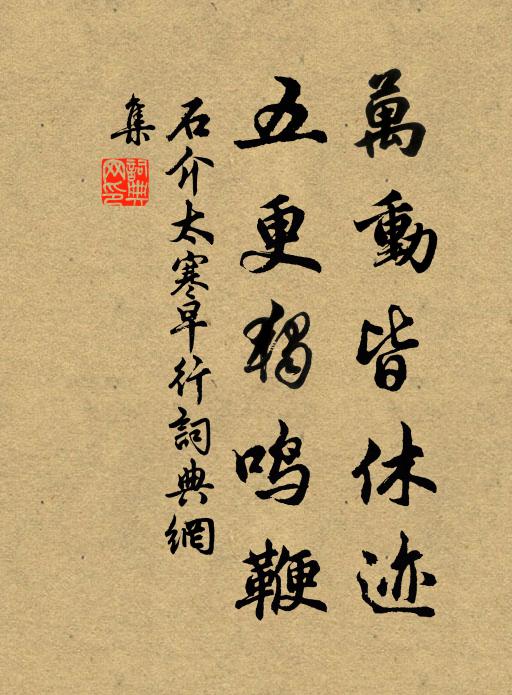 萬動皆休迹
五更獨鳴鞭
石介太寒早行詞典網
集
詞典
网印